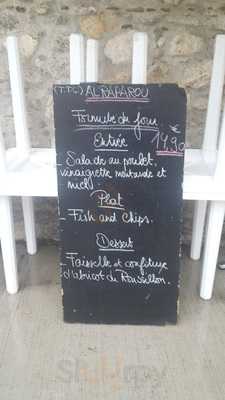 (T.T.C) AL RAPAROU
Formule du jour
14.90 €
Entrée
_ Salade au poulet,
vinaigrette moutarde et
miel
Plat
_ Fish and chips.
Dessert
_ Faisselle et confiture
d'abricot du Roussillon.